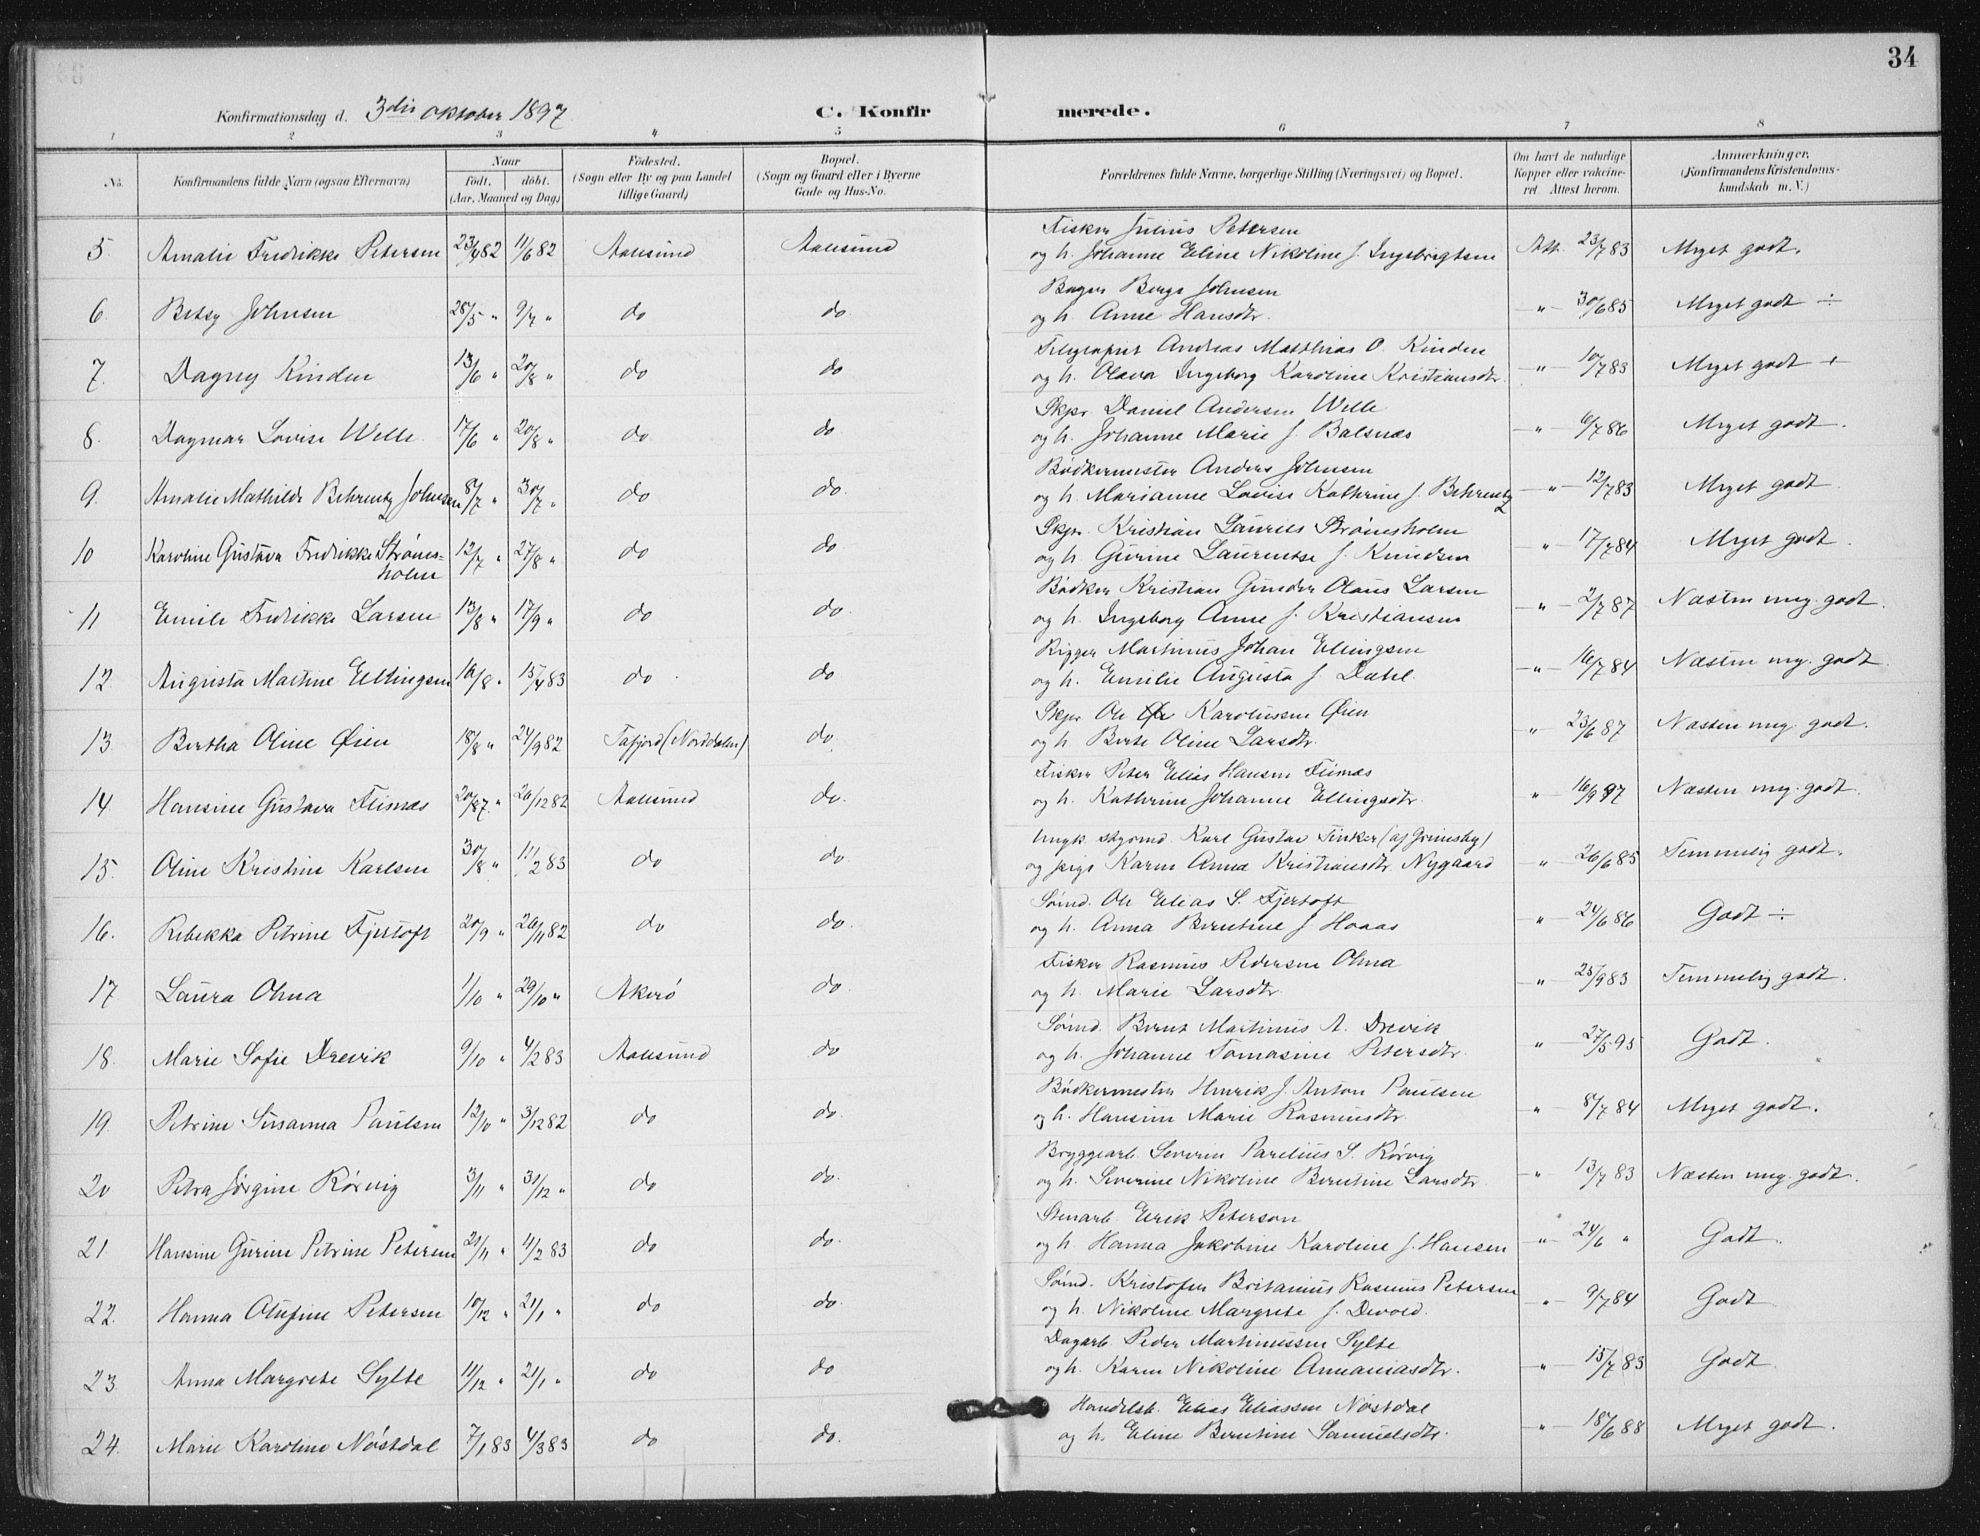 34
Konfirmationsdag d. 3die oktober 1897 C. Konfirmerede.
1 2 3 4 5 6 7 8
No.
Konfirmandens fulde Navn (ogsaa Efternavn)
Naar
födt. döbt.
(Aar, Maaned og Dag)
Födested.
(Sogn eller By og paa Landet
tillige Gaard)
Bopæl.
(Sogn og Gaard eller i Byerne
Gade og Hus-No.
Forældrenes fulde Navne, borgerlige Stilling (Næringsvei) og Bopæl.
Om havt de naturlige
Kopper eller vakcine-
ret. Attest herom.
Anmærkninger.
(Konfirmandens Kristendoms-
kundskab m. V.)
Fisker Julius Petersen
5. Amalie Fredrikke Petersen 23/4 82 11/6 82 Aalesund Aalesund og h. Johanne Eline Nikoline f. Ingebrigtsen Att. 23/7 83 Meget godt.
Bager Berge Johnsen
6. Betsy Johnsen 28/5 " 9/7 " do do og h. Anne Hansdtr. " 30/6 85 Meget godt ÷
Telegrafist Andreas Matthias O. Kinden
7. Dagny Kinden 13/6 " 20/8 " do do og h. Olava Ingeborg Karoline Kristiansdtr. " 10/7 83 Meget godt +
Skpr. Daniel Andersen Welle
8. Dagmar Lovise Welle 17/6 " 20/8 " do do og h. Johanne Marie f. Balsnæs " 6/7 86 Meget godt.
Bødkermester Anders Johnsen
9. Amalie Mathilde Behrentz Johnsen 8/7 " 30/7 " do do. og h. Marianne Lovise Kathrine f. Behrentz " 12/7 83 Meget godt.
Skpr. Kristian Laurits Strømsholm
10 Karoline Gustava Fredrikke Strøms-
holm 12/7 " 27/8 " do do og h. Gurine Laurentse f. Knudsen " 17/7 84 Meget godt.
Bødker Kristian Gunder Olaus Larsen
11 Emile Fredrikke Larsen 13/8 " 17/9 " do do og h. Ingeborg Anne f. Kristiansen " 2/7 87 Næsten meg. godt.
Rigger Martinus Johan Ellingsen
12 Augusta Martine Ellingsen 16/8 " 15/4 83 do do og h. Emilie Augusta f. Dahl. " 16/7 84 Næsten meg. godt.
Skpr Ole Karolussen Øien
13. Bertha Oline Øien 18/8 " 24/9 82 Tafjord (Norddalen) do. og h Berte Oline Larsdtr. " 23/6 87 Næsten meg. godt.
Fisker Peter Elias Hansen
14. Hansine Gustava 26/12 82 Aalesund do. og h. Kathrine Johanne Ellingsdtr. " 16/9 97 Næsten meg. godt.
Ungk. Karl Gustav Tinker (af Grimsby)
15. Oline Kristine Karlsen 30/8 " 11/2 83 do do. og pige Karen Anna Kristiansdtr. Nygaard " 26/6 85 Temmelig godt.
Sømd. Ole Elias S. Fjertoft
16. Rebekka Petrine Fjertoft 20/9 " 26/11 82 do do. og h. Anna Berntine f Haaas " 24/6 86 Godt ÷
Fisker Rasmus Pedersen Ohna
17 Laura Ohna 1/10 " 29/10 " Akerö do og h. Marie Larsdtr. " 25/9 83 Temmelig godt.
Sømd. Bernt Martinus A. Drevik
18. Marie Sofie Drevik 9/10 " 4/2 83 Aalesund do og h. Johanne Tomasine Petersdtr. " 27/5 95 Godt.
Bødkermester Henrik J. Anton Paulsen
19. Petrine Susanna Paulsen 12/10 " 3/12 82 do do. og h. Hansine Marie Rasmusdtr. " 8/7 84 Meget godt.
Bryggearb. Severin Parelius S. Rørvig
20 Petra Jørgine Rørvig 3/11 " 31/12 " do do. og h. Severine Nikoline Berntine Larsdtr. " 13/7 83 Næsten meg. godt.
Stenarb. Erik Peterson
21. Hansine Gurine Petrine Petersen 21/11 " 4/2 83 do do. og h. Hanna Jakobine Karoline f. Hansen " 24/6 " Godt.
Sømd. Kristofer Britanius Rasmus Petersen
22. Hanna Olufine Petersen 10/12 " 21/1 " do do. og h. Nikoline Margrete f. Devold. " 9/7 84 Godt
Dagarb. Peder Martinussen Sylte
23. Anna Margrete Sylte 11/12 " 21/1 " do do og h. Karen Nikoline Annaniasdtr. " 15/7 83 Godt
Handelsb. Elias Eliassen Nøstdal
24. Marie Karoline Nøstdal 7/1 83 4/3 83 do do. og h. Eline Berntine Samuelsdtr. " 18/6 88 Meget godt.